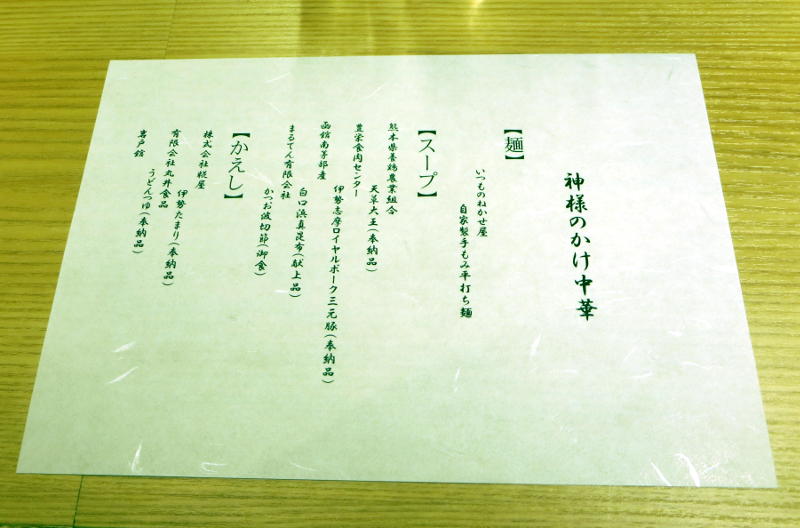 神様のかけ中華
【麺】
いつものねかせ屋
自家製手もみ平打ち麺
【スープ】
熊本県養鶏農業組合
天草大王(奉納品)
豊栄食肉センター
伊勢志摩ロイヤルポーク三元豚(奉納品)
函館南茅部産
白口浜真昆布(献上品)
まるてん有限会社
かつお波切節(御食)
【かえし】
株式会社糀屋
伊勢たまり(奉納品)
有限会社丸井食品
うどんつゆ(奉納品)
岩戸館